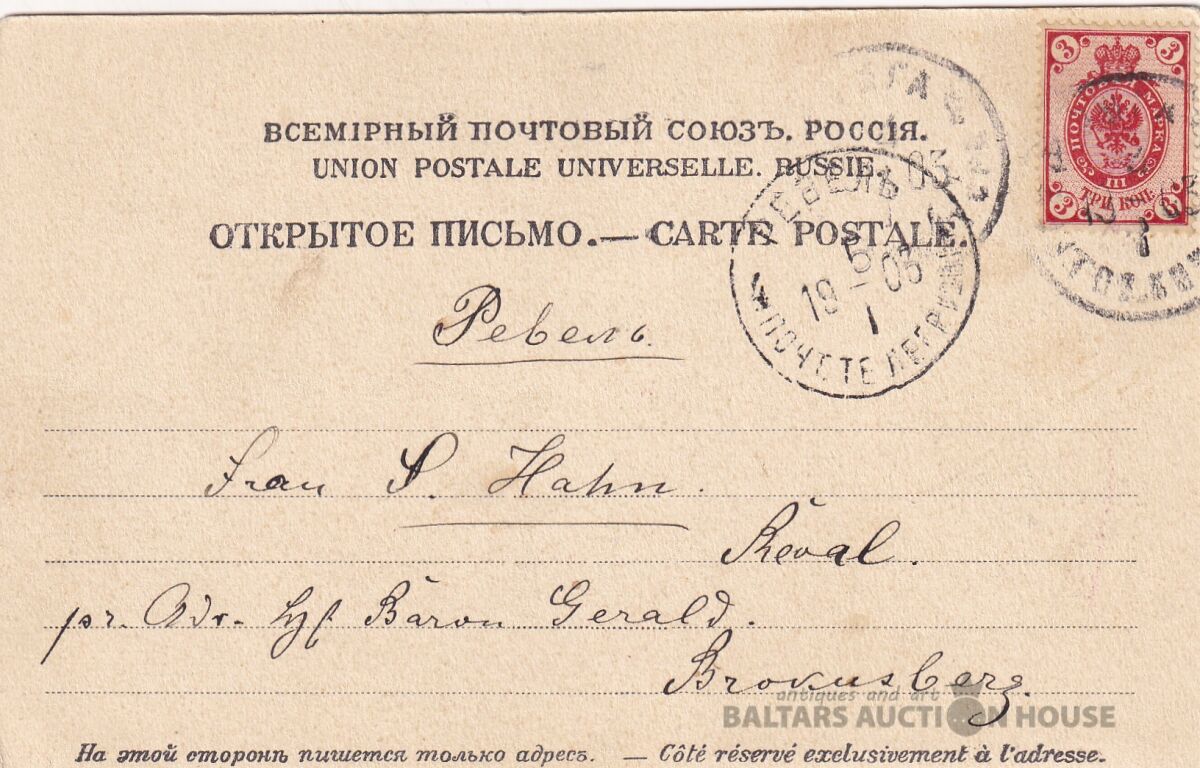 ВСЕМІРНЫЙ ПОЧТОВЫЙ СОЮЗЪ. РОССІЯ.
UNION POSTALE UNIVERSELLE. RUSSIE.
ОТКРЫТОЕ ПИСЬМО.—CARTE POSTALE.
3 3
ПОЧТОВАЯ МАРКА
III
ТРИ КОП.
3 3
РЕВЕЛЬ
5
19 – 03
1
ПОЧ. ТЕЛЕГР
03
Ревель.
Frau S. Hahn.
Reval.
pr. Adr. Baron Gerald.
Brokusberg.
antiques and art
BALTARS AUCTION HOUSE
На этой сторонѣ пишется только адресъ. — Côté réservé exclusivement à l'adresse.